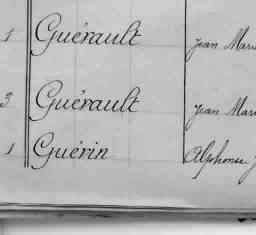 1 Guérault Jean Marie
3 Guérault Jean Marie
1 Guérin Alphonse J